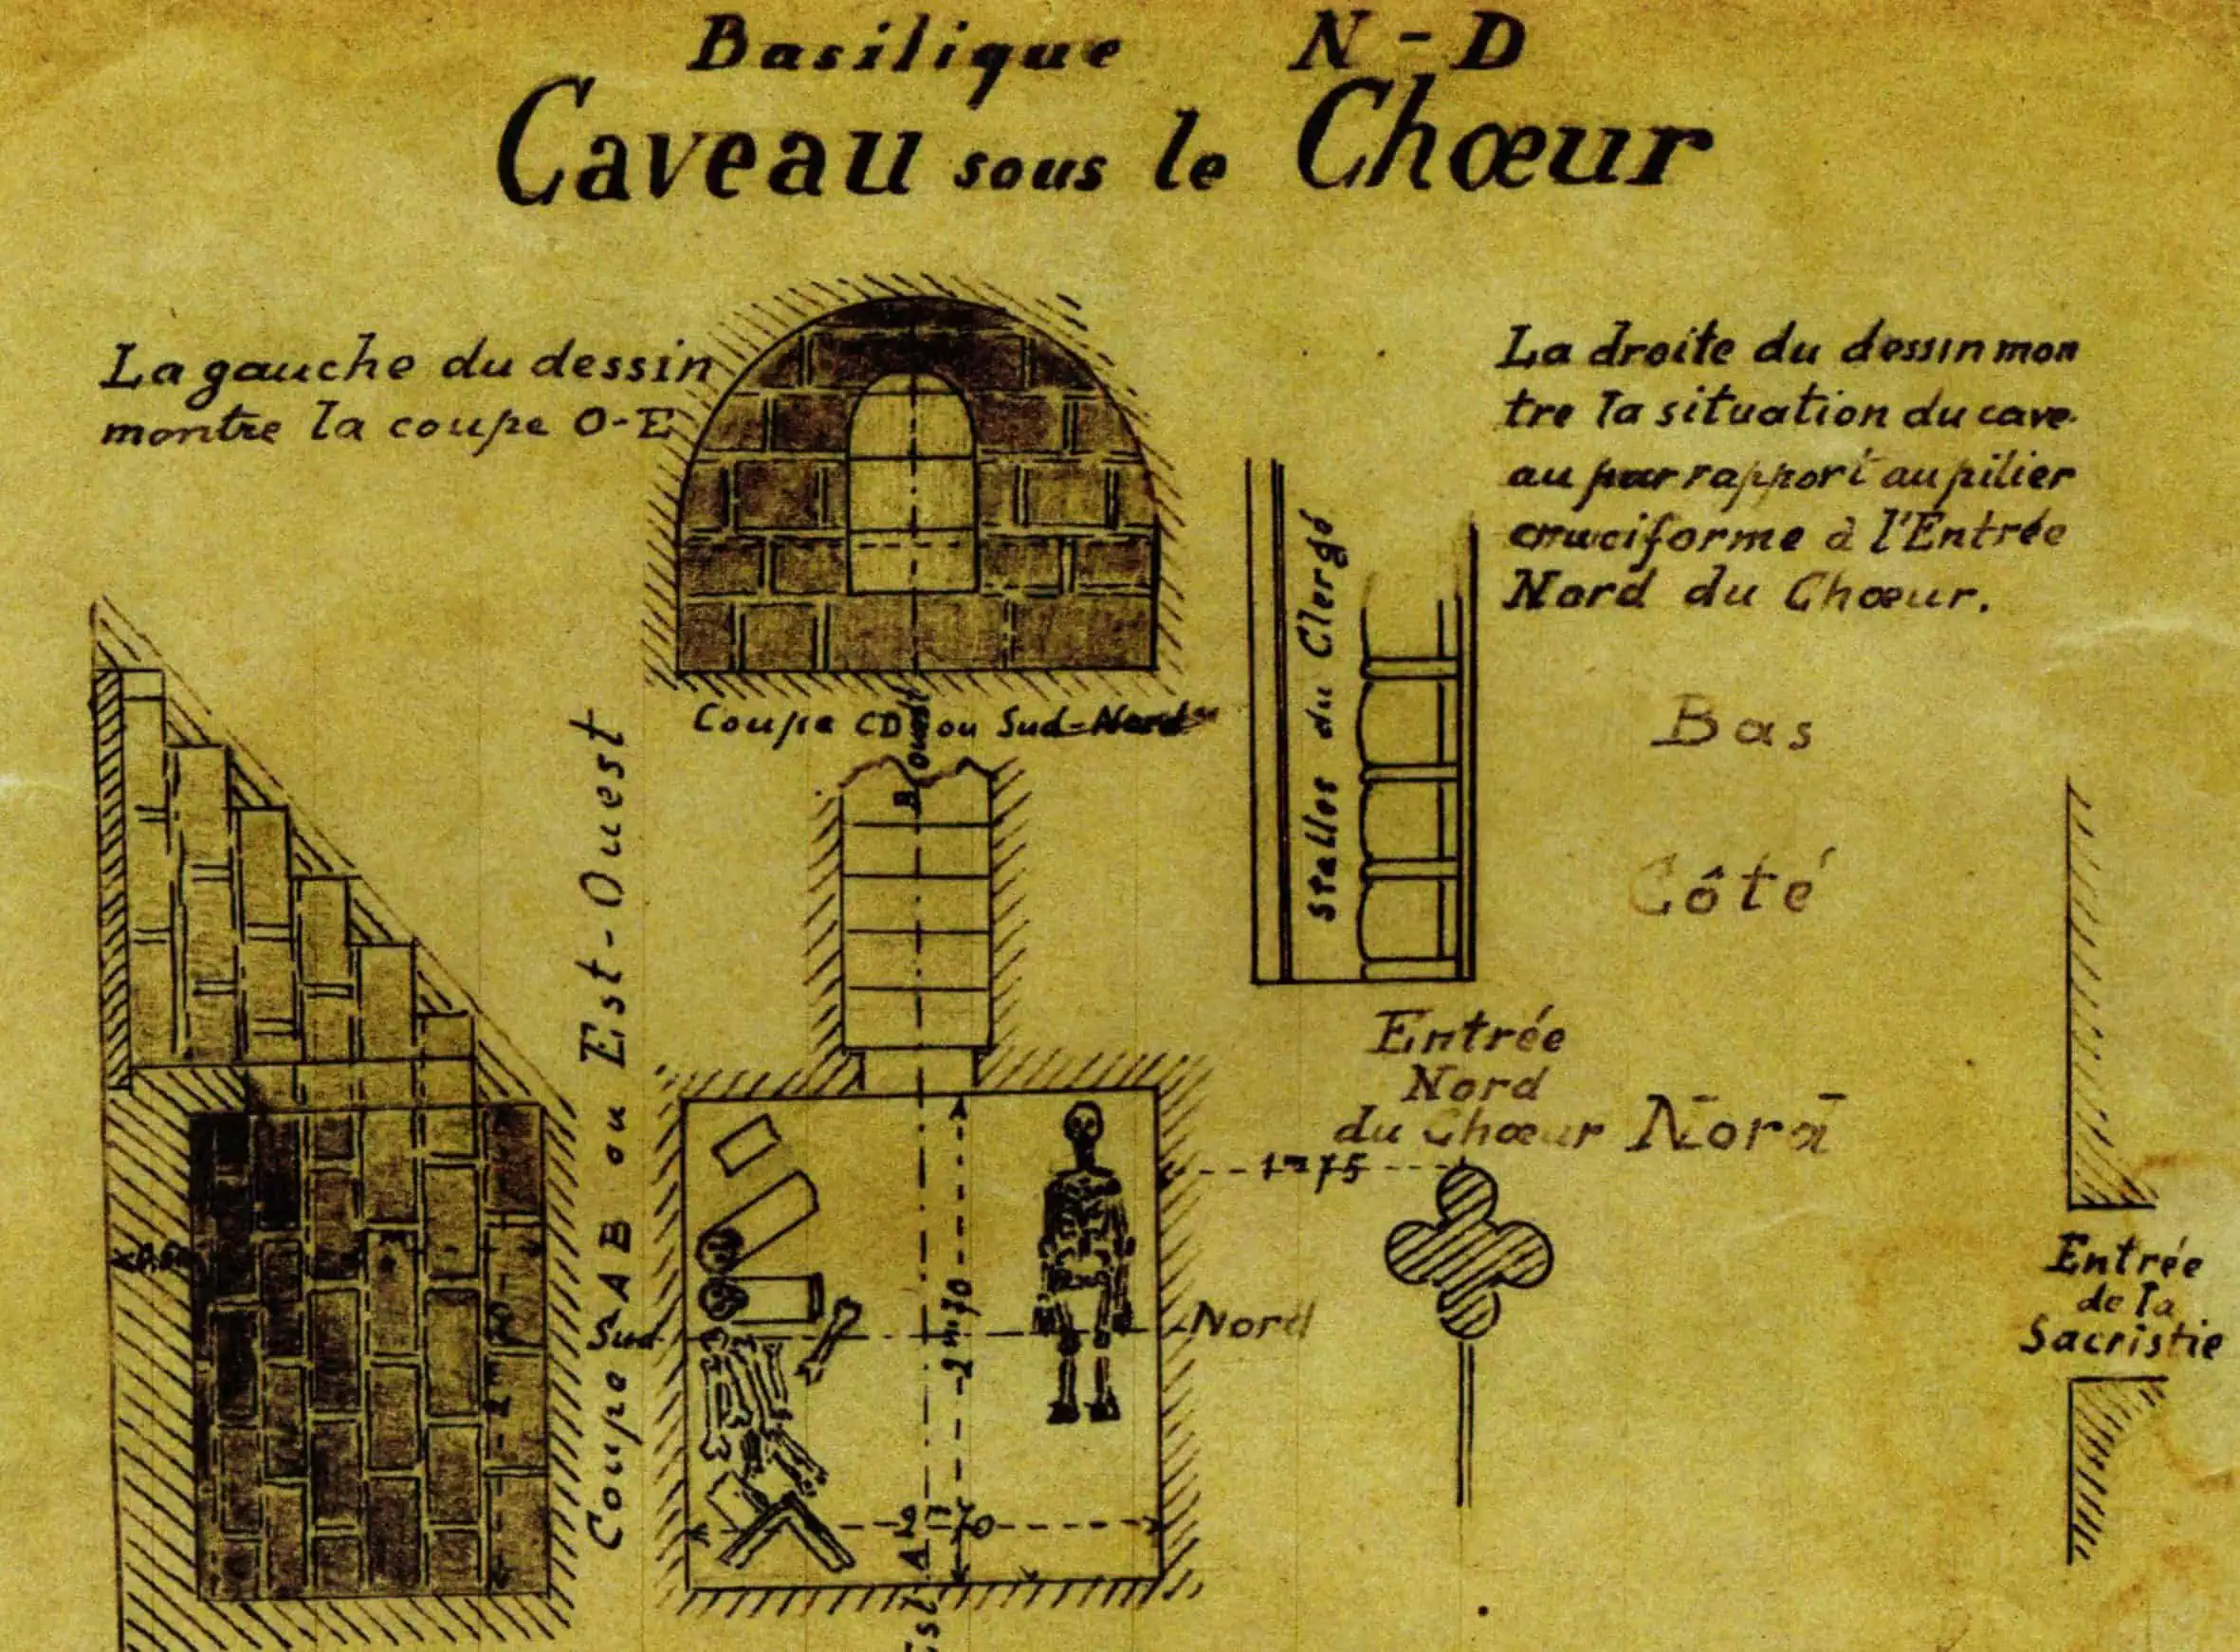 Basilique N-D
Caveau sous le Chœur
La gauche du dessin
montre la coupe O-E
La droite du dessin mon
tre la situation du cave-
au par rapport au pilier
cruciforme à l'Entrée
Nord du Chœur.
Coupe CD ou Sud-Nord
Ouest
B
Coupe AB ou Est-Ouest
Stalles du Clergé
Bas
Côté
Nord
Entrée
Nord
du Chœur
1m75
Sud
Nord
2m70
2m70
A
Est
Entrée
de la
Sacristie